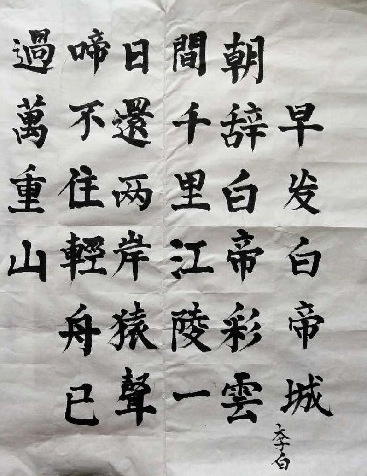 早发白帝城
李白
朝辞白帝彩雲
間千里江陵一
日還两岸猿聲
啼不住輕舟已
過萬重山